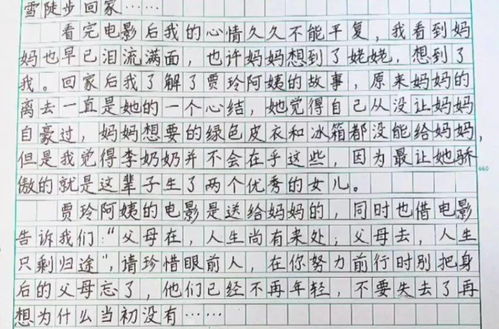 雪徒步回家……
看完电影后我的心情久久不能平复，我看到妈
妈也早已泪流满面，也许妈妈想到了姥姥，想到了
我。回家后我了解了贾玲阿姨的故事，原来妈妈的
离去一直是她的一个心结，她觉得自己从没让妈妈
自豪过，妈妈想要的绿色皮衣和冰箱都没能给妈妈，
但是我觉得李奶奶并不会在乎这些，因为最让她骄
傲的就是这辈子生了两个优秀的女儿。
贾玲阿姨的电影是送给妈妈的，同时也借电影
告诉我们："父母在，人生尚有来处；父母去，人生
只剩归途"，请珍惜眼前人，在你努力前行时别把身
后的父母忘了，他们已经不再年轻，不要失去了再
想为什么当初没有……